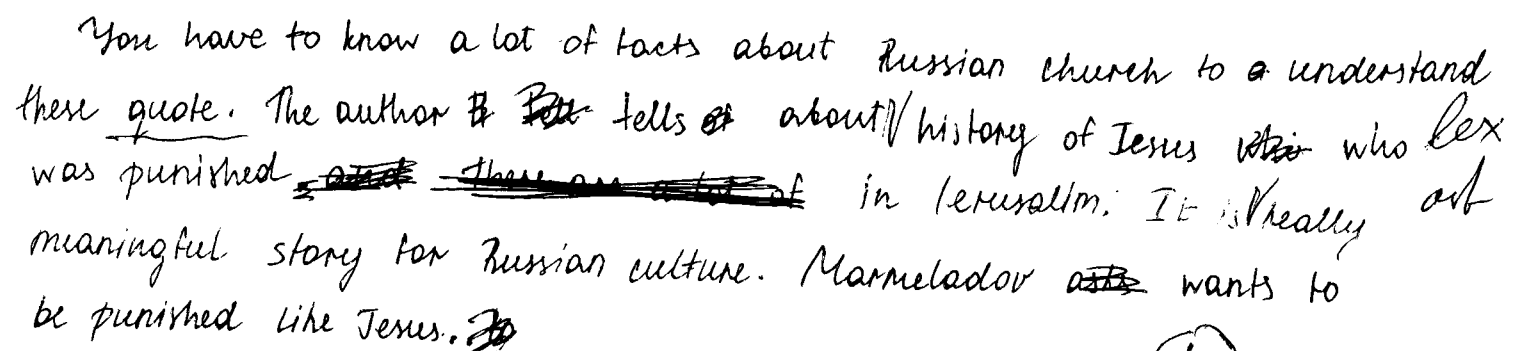 You have to know a lot of facts about Russian church to a understand
these quote. The author tells about √ history of Jesus who lex
was punished in Ierusalim. It is √ really art
meaningful story for Russian culture. Marmeladov wants to
be punished like Jesus.